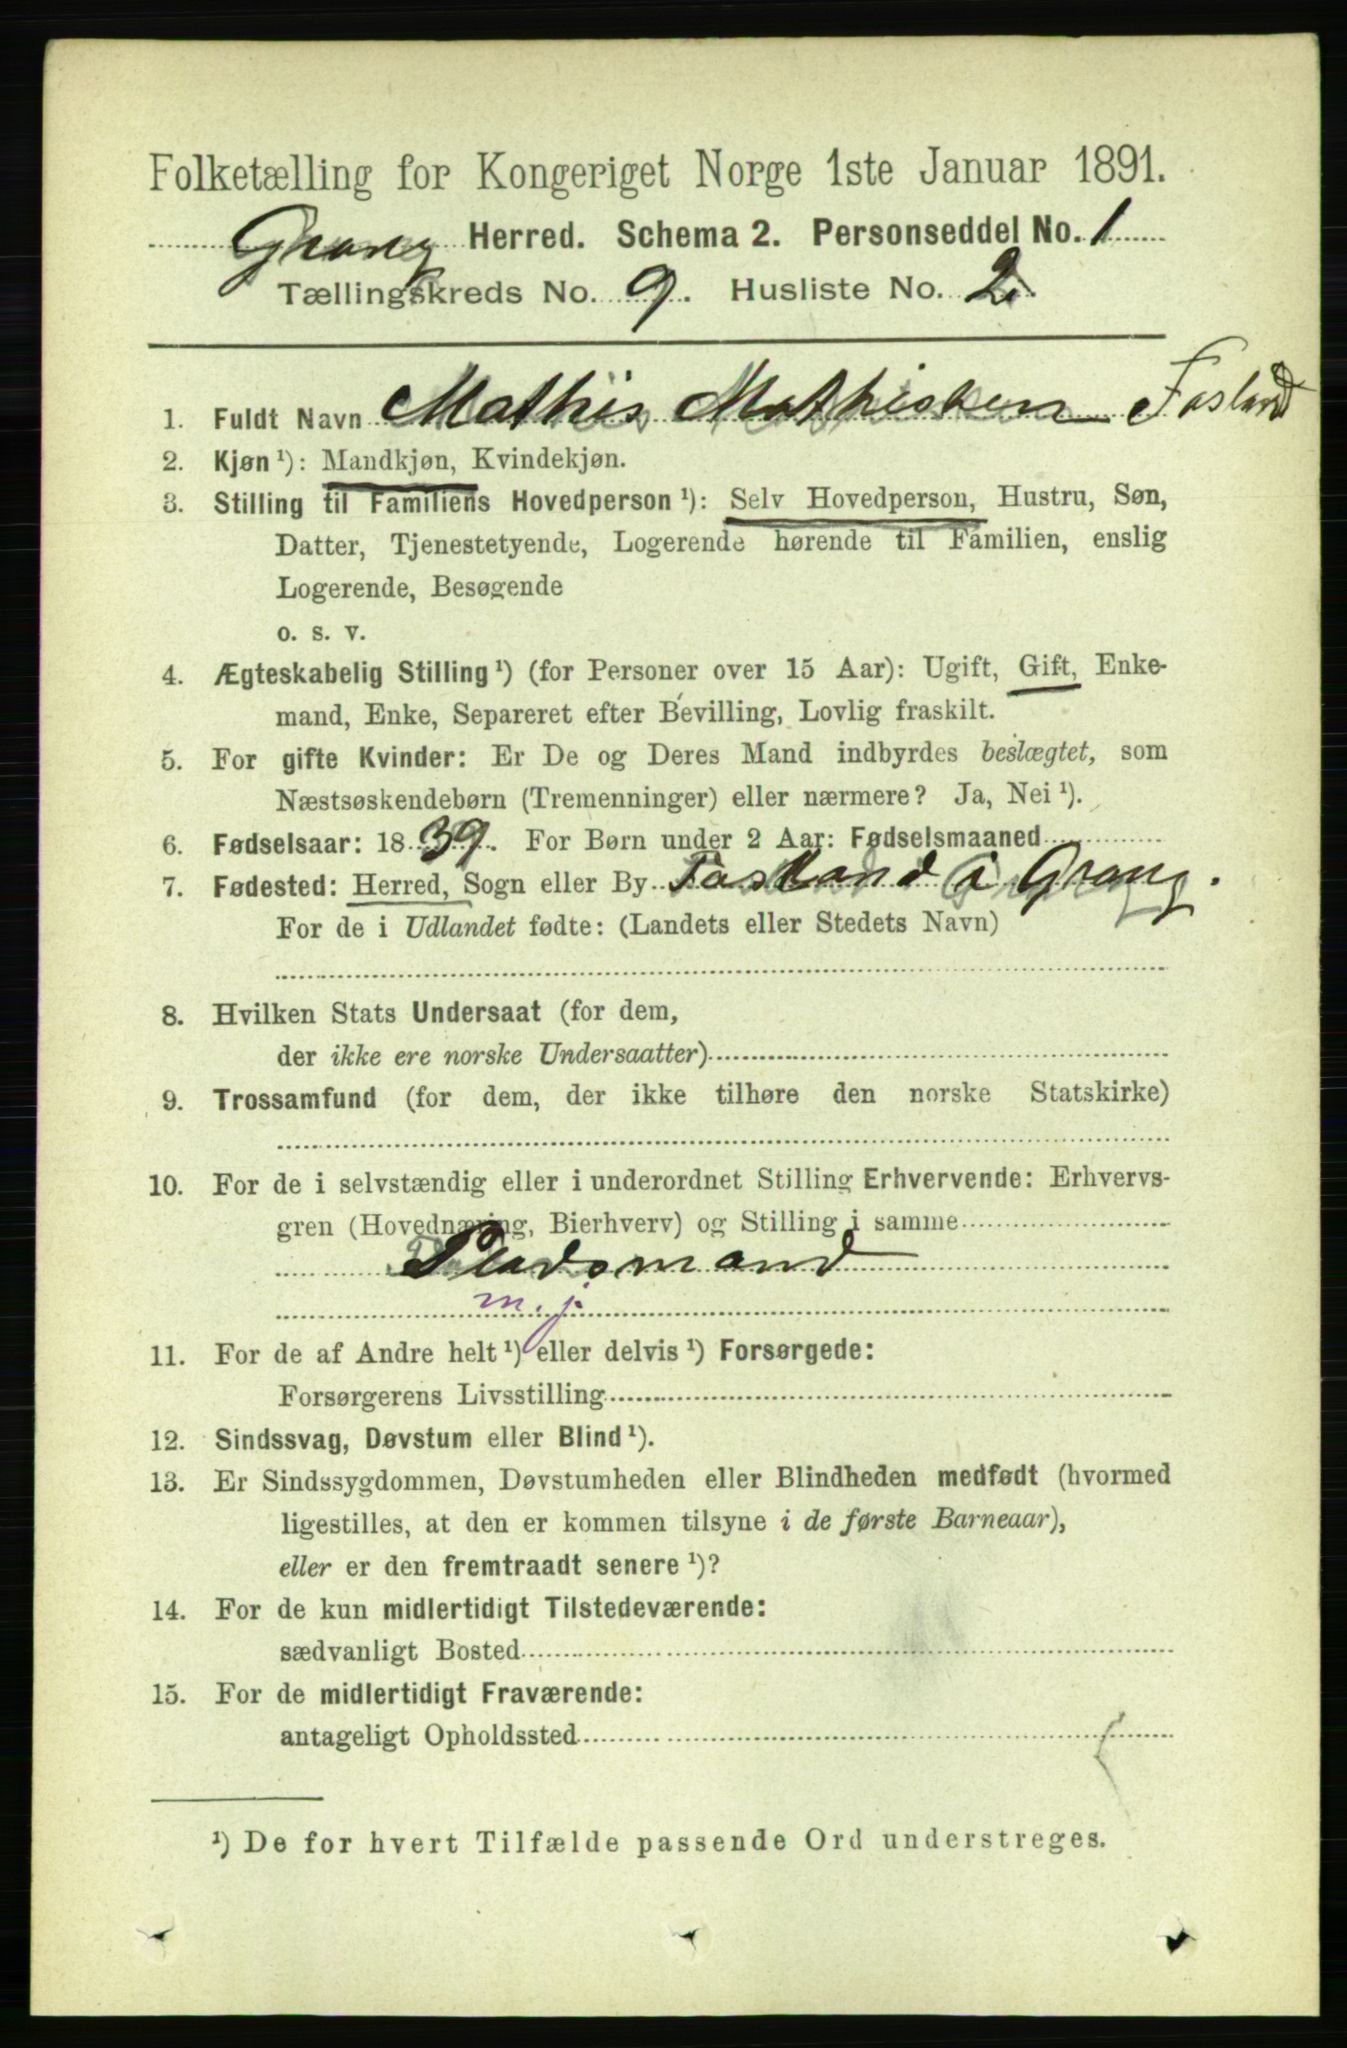 Folketælling for Kongeriget Norge 1ste Januar 1891.
Grong Herred. Schema 2. Personseddel No. 1
Tællingskreds No. 9. Husliste No. 2.
1. Fuldt Navn Mathis Mathisken Fosland
2. Kjøn ¹): Mandkjøn, Kvindekjøn.
3. Stilling til Familiens Hovedperson ¹): Selv Hovedperson, Hustru, Søn,
Datter, Tjenestetyende, Logerende hørende til Familien, enslig
Logerende, Besøgende
o. s. v.
4. Ægteskabelig Stilling ¹) (for Personer over 15 Aar): Ugift, Gift, Enke-
mand, Enke, Separeret efter Bevilling, Lovlig fraskilt.
5. For gifte Kvinder: Er De og Deres Mand indbyrdes beslægtet, som
Næstsøskendebørn (Tremenninger) eller nærmere? Ja, Nei ¹).
6. Fødselsaar: 1839. For Børn under 2 Aar: Fødselsmaaned
7. Fødested: Herred, Sogn eller By Fosland i Grong.
For de i Udlandet fødte: (Landets eller Stedets Navn)
8. Hvilken Stats Undersaat (for dem,
der ikke ere norske Undersaatter)
9. Trossamfund (for dem, der ikke tilhøre den norske Statskirke)
10. For de i selvstændig eller i underordnet Stilling Erhvervende: Erhvervs-
gren (Hovednæring, Bierhverv) og Stilling i samme
Pladsmand
m. j.
11. For de af Andre helt ¹) eller delvis ¹) Forsørgede:
Forsørgerens Livsstilling
12. Sindssvag, Døvstum eller Blind ¹).
13. Er Sindssygdommen, Døvstumheden eller Blindheden medfødt (hvormed
ligestilles, at den er kommen tilsyne i de første Barneaar),
eller er den fremtraadt senere ¹)?
14. For de kun midlertidigt Tilstedeværende:
sædvanligt Bosted
15. For de midlertidigt Fraværende:
antageligt Opholdssted
¹) De for hvert Tilfælde passende Ord understreges.